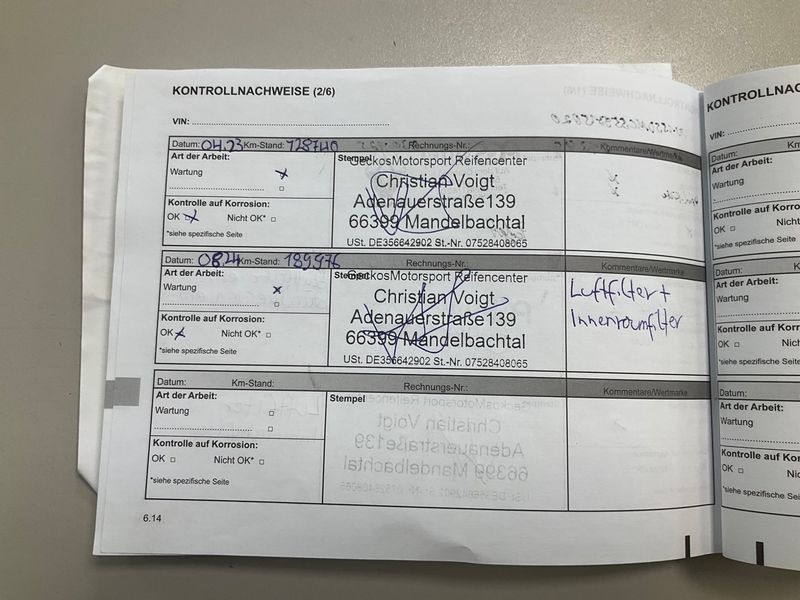 KONTROLLNACHWEISE (2/6)
VIN:
Datum: 04.23 Km-Stand: 128740 Rechnungs-Nr.: Kommentare/Wertmarke
Art der Arbeit:
Wartung x
Kontrolle auf Korrosion:
OK x Nicht OK*
*siehe spezifische Seite
Stempel
GeckosMotorsport Reifencenter
Christian Voigt
Adenauerstraße139
66399 Mandelbachtal
USt. DE356642902 St.-Nr. 07528408065
Datum: 08.24 Km-Stand: 189976 Rechnungs-Nr.: Kommentare/Wertmarke
Art der Arbeit:
Wartung x
Kontrolle auf Korrosion:
OK x Nicht OK*
*siehe spezifische Seite
Stempel
GeckosMotorsport Reifencenter
Christian Voigt
Adenauerstraße139
66399 Mandelbachtal
USt. DE356642902 St.-Nr. 07528408065
Luftfilter +
Innenraumfilter
Datum: Km-Stand: Rechnungs-Nr.: Kommentare/Wertmarke
Art der Arbeit:
Wartung
Kontrolle auf Korrosion:
OK Nicht OK*
*siehe spezifische Seite
Stempel
6.14
KONTROLLNACHW
VIN:
Datum: Km-
Art der Arbeit:
Wartung
Kontrolle auf Korrosion:
OK Nicht OK
*siehe spezifische Seite
Datum: Km
Art der Arbeit:
Wartung
Kontrolle auf Korros
OK Nicht O
*siehe spezifische Seite
Datum: K
Art der Arbeit:
Wartung
Kontrolle auf Korro
OK Nicht
*siehe spezifische Seit